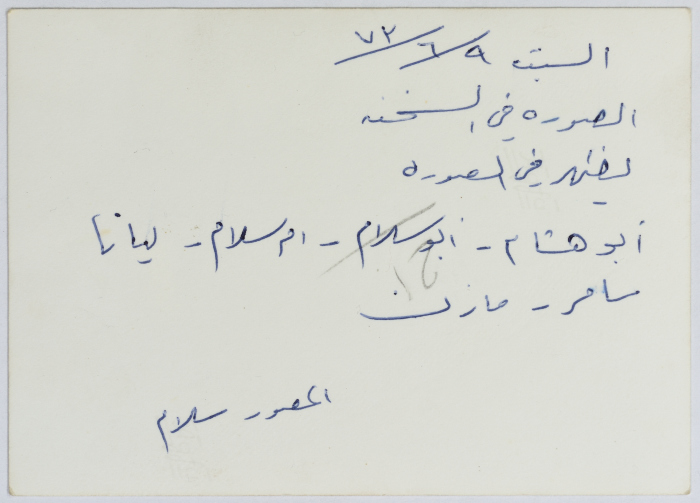 السبت ٩/٦/٧٢
الصوره في السخنه
يظهر في الصوره
أبو هشام - أبو سلام - ام سلام - ليانا
سامر - مازن
المصور سلام